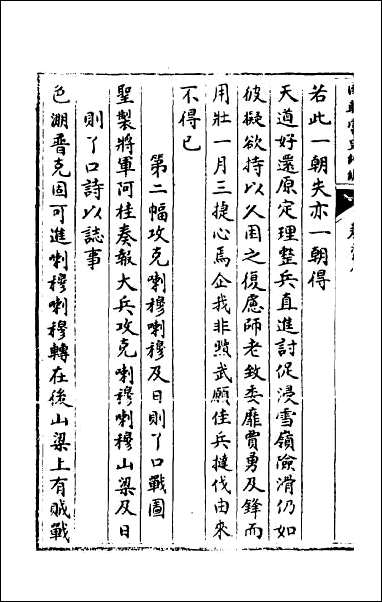 若此一朝失亦一朝得
天道好還原定理整兵直進討促浸雪嶺險滑仍如
彼擬欲持以久困之復慮師老致委靡賈勇及鋒而
用壯一月三捷心焉企我非黷武願佳兵撻伐由來
不得已
第二幅攻克喇穆喇穆及日則丫口戰圖
聖製將軍阿桂奏報大兵攻克喇穆喇穆山梁及日
則丫口詩以誌事
色淜普克固可進喇穆喇穆轉在後山梁上有賊戰